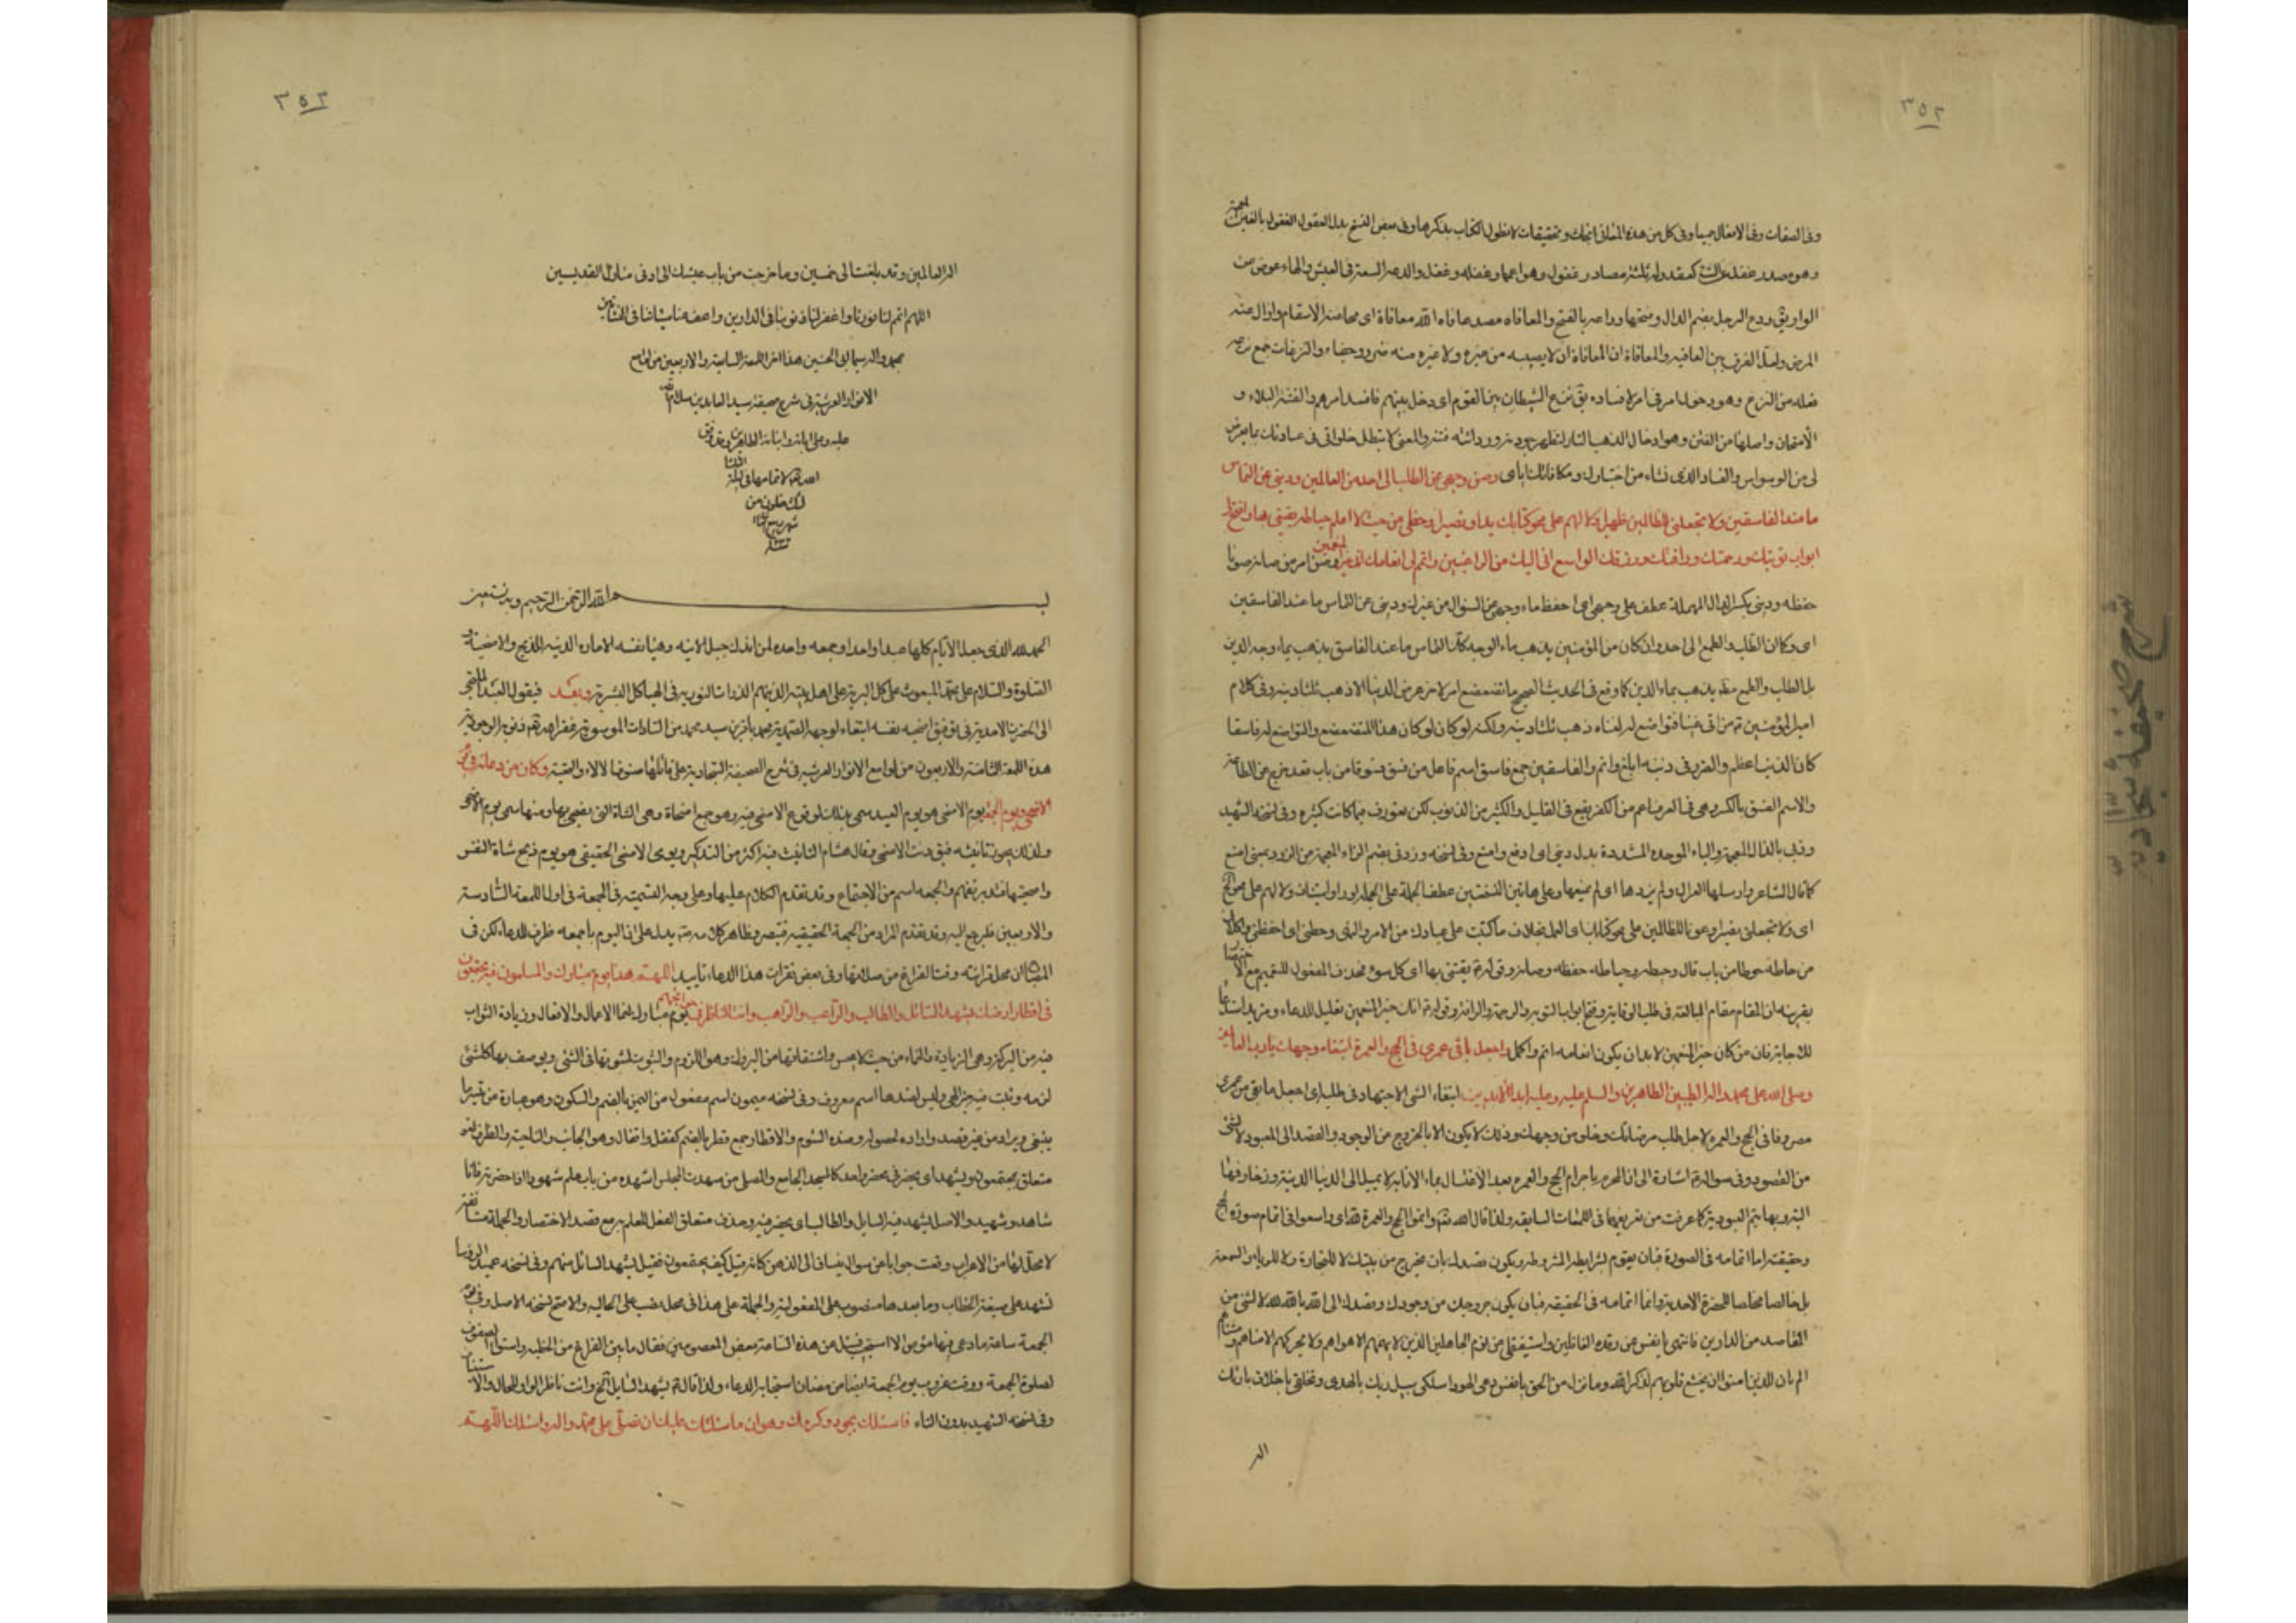 ٣٥٢
وفى الصفات وفى الافعال جميعا وفى كل من هذه المعانى ابحاث وتحقيقات لا نطول الكتاب بذكرها وفى بعض النسخ بدل العقول الغفول بالغين المعجمة
وهو مصدر غفل كقعد وله ثلثة مصادر غفول وهو اعمها وغفله وغفل والدعة السعة فى العيش والهاء عوض من
الواو يق ودع الرجل بضم الدال وفتحها وداعه بالفتح والمعافاه مصدر عافاه الله معافاة اى محا عنه الاسقام وازال عنه
المرض ولعل الفرق بين العافيه والمعافاة ان المعافاة ان لا يصيبه من غيره ولا غيره منه ضرر وجفاء والنزغات جمع نزغه
فعله من النزغ وهو دخول امر فى امر لافساده يق نزغ الشيطان بين القوم اى دخل بينهم فافسد امرهم والفتنة البلاء و
الامتحان واصلها من الفتن وهو ادخال الذهب النار لتظهر جودته وردائته والمعنى لا تبطل خلواتى فى عبادتك بما يعرض
لى من الوسواس والفساد الذى نشاء من اختبارك ومكافاتك اياى وصن وجهى عن الطلب الى احد من العالمين وذبنى عن التماس
ما عند الفاسقين ولا تجعلنى للظالمين ظهيرا ولا لهم على محو كتابك يدا ونصيرا وحطنى من حيث لا اعلم حياطة تقينى بها وافتح لى
ابواب توبتك ورحمتك ورافتك ورزقك الواسع انى اليك من الراغبين واتمم لى انعامك انك خير المنعمين وصن امر من صانه صونا
حفظه وذبنى بكسر الدال المهملة عطف على وجهى اى احفظ ماء وجهى عن السؤال من غيرك وذبنى عن التماس ما عند الفاسقين
اى وكما ان الطلب والطمع الى احد وان كان من المؤمنين يذهب بماء الوجه كك التماس ما عند الفاسق يذهب بماء وجه الدين
بل الطلب والطمع مط يذهب بماء الدين كما وقع فى الحديث الصحيح ما تضعضع امرء لاخر عرض الدنيا الا ذهب ثلثا دينه وفى كلام
امير المؤمنين ع من اتى غنيا فتواضع له لغناه ذهب ثلثا دينه ولكنه لو كان هذا المتضعضع والمتواضع له فاسقا
كان الذنب اعظم والضرر فى دينه ابلغ واتم والفاسقين جمع فاسق اسم فاعل من فسق فسوقا من باب قعد خرج عن الطاعة
والاسم الفسق بالكسر وهى فى العرف اعم من الكفر يقع فى القليل والكثير من الذنوب لكن تعورف فيما كانت كثيره وفى نسخه الشهيد
وذبنى بالذال المعجمة والباء الموحده المشددة بدل ذبنى اى ادفع وامنع وفى نسخه وزدنى بضم الزاء المعجمة من الزود بمعنى امنع
كما قال الشاعر وارسلها العراك ولم يذدها اى لم يمنعها وعلى هاتين النسختين عطف الجملة على الجملة
اى ولا تجعلنى نصيرا وعونا للظالمين على محو كتابك اى العمل بخلاف ما كتبت على عبادك من الامر والنهى وحطنى اى احفظنى
من حاطه حوطا من باب قال وحيطة وحياطه حفظه وصانه وقوله تقينى بها اى كل سوء فحذف المفعول للتعميم مع الاختصار
بقرينه ان المقام مقام المبالغة فى طلب الوقاية وفتح ابواب التوبه والرحمة والرافة وقوله انك خير المنعمين تعليل للدعاء
للاجابة فان من كان خير المنعمين لا بد ان يكون انعامه اتم واكمل واجعل باقى عمرى فى الحج والعمرة ابتغاء وجهك يا رب العالمين
وصلى الله على محمد وآله الطيبين الطاهرين والسلم عليه وعليهم ابد الابدين ابتغاء الشى الاجتهاد فى طلبه اى اجعل ما بقى من عمرى
مصروفا فى الحج والعمرة لاجل طلب مرضاتك وخلوص وجهك وذلك لا يكون الا بالخروج من الوجود والقصد الى المعبود
من المقصود وفى سؤاله اشارة الى ان المحرم باحرام الحج والعمره بعد الاغتسال بماء الانابة لا يميل الى الدنيا الدنية وزخارفها
البته وبها يتم العبودية كما عرفت من تعريفها فى اللمعات السابقه ولذا قال الله تعالى واتموا الحج والعمرة لله اى واسعوا فى اتمام صورة الحج
وحقيقته اما اتمامه فى الصورة فبان يقوم بشرايطه المشروطة ويكون قصدك بان تخرج من بيتك لا للتجارة ولا للرياء والسمعة
بل خالصا مخلصا للحضرة الاحدية واما اتمامه فى الحقيقه فبان يكون خروجك من وجودك وقصدك الى الله بالله لله لا لشئ من
المقاصد من الدارين فانتهى يا نفس عن رقدة الغافلين واستيقظى من نوم الجاهلين الذين لا يهمهم الا هواهم
الم يان للذين امنوا ان تخشع قلوبهم لذكر الله وما نزل من الحق يا نفس دعى الهوى واسلكى سبيل ربك بالهدى وتخلقى باخلاق بارئك
اله
٣٥٣
اله العالمين وقد بلغت الى خمسين وما خرجت من باب عيشك الى ادنى منازل القديسين
اللهم اتمم لنا نورنا واغفر لنا ذنوبنا فى الدارين واعف عنا سيئاتنا فى النشاتين
بمحمد وآله سيما ابى الحسين هذا اخر اللمعة السابعة والاربعين من لوامع
الانوار العرشية فى شرح صحيفة سيد العابدين سلام الله
عليه وعلى ابائه وابنائه الطاهرين وقد وفق
الله تعالى لاتمامها فى ليلة الثلثا
لثلث خلون من
شهر ربيع الثانى
بسم الله الرحمن الرحيم وبه نستعين
الحمد لله الذى جعل الايام كلها عيدا واحدا وجمعه واحده لمن اندك جبل الانيه وهيأ نفسه الاماره الدنية للذبح والاضحية و
الصلوة والسلام على محمد المبعوث على كل البرية وعلى اهل بيته الذين هم الذرات النورية فى الهياكل البشرية وبعد فيقول العبد الملتجى
الى الحضرة الاحدية فى توفيق اضحيه نفسه ابتغاء لوجهه الصمدية محمد باقر بن سيد محمد من السادات الموسوية غفر الله لهم ذنوبه الوجودية
هذه اللمعة الثامنة والاربعون من لوامع الانوار العرشيه فى شرح الصحيفة السجادية على قائلها صنوف الالاء والتحية وكان من دعائه فى يوم
الاضحى ويوم الجمعة يوم الاضحى هو يوم العيد سمى بذلك لوقوع الاضحى فيه وهو جمع اضحاة وهى الشاة التى يضحى بها ومنها سمى يوم الاضحى
ولذلك يجوز تانيثه فيق دنت الاضحى وقال هشام التانيث فيه اكثر من التذكير ويوم الاضحى الحقيقى هو يوم ذبح شاة النفس
واضحيتها فتدبر تفهم والجمعه اسم من الاجتماع وقد تقدم الكلام عليها وعلى وجه التسمية فى الجمعة فى اول اللمعة السادسة
والاربعين فليرجع اليه وقد تقدم المراد من الجمعة الحقيقيه فتبصر وظاهر كلامه يدل على ان اليوم باجمعه ظرف للدعاء لكن فى
المصباح ان محل قرائته وقت الفراغ من صلاتها وفى بعض فقرات هذا الدعاء تاييد اللهم هذا يوم مبارك والمسلمون فيه مجتمعون
فى اقطار ارضك يشهد السائل منهم والطالب والراغب والراهب وانت الناظر فى حوائجهم يوم مبارك لنماء الاعمال والافعال وزيادة الثواب
فيه من البركة وهى الزيادة والنماء من حيث لا يحس واشتقاقها من البروك وهو اللزوم والثبوت لثبوتها فى الشئ ويوصف بها كل شئ
لزمه وثبت فيه خير الهى وليس لضدها اسم معروف وفى نسخه ميمون اسم مفعول من اليمن بالضم والسكون وهو عبارة من خير ما
ينبغى ويراد من غير قصد واراده لحصوله وضده الشوم والاقطار جمع قطر بالضم كقفل واقفال وهو الجانب والناحية والظرف لغو
متعلق بمجتمعون ويشهد اى يحضر فى محضر واحد كالمسجد الجامع والمصلى من شهدت المجلس اشهده من باب علم شهودا اذا حضرته فانا
شاهد وشهيد والاصل يشهد فيه السايل والطالب اى يحضر فيه وحذف متعلق الفعل للعلم به مع قصد الاختصار والجملة مستانفة
لا محل لها من الاعراب وقعت جوابا عن سؤال ينساق الى الذهن كانه قيل كيف يجتمعون فقيل يشهد السائل منهم وفى نسخه عميد الروسا
تشهد على صيغة الخطاب وما بعدها منصوب على المفعولية والجملة على هذا فى محل نصب على الحاليه والاصح نسخه الاصل وفى يوم
الجمعة ساعة ما دعى فيها مؤمن الا استجيب فسئل عن هذه الساعة بعض المعصومين فقال ما بين الفراغ من الخطبه واستواء الصفوف
لصلوة الجمعة ووقت غروب يوم الجمعة ايضا من مضان استجابه الدعاء ولذا قال يشهد السايل الخ وانت ناظر الواو للحال والاستيناف
وفى نسخه الشهيد بدون التاء فاسئلك بجودك وكرمك وهوان ما سئلتك عليك ان تصلى على محمد وآله واسئلك اللهم
شرح صحيفة سجادية